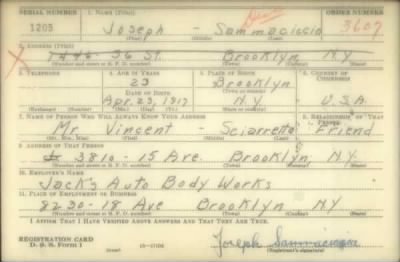 SERIAL NUMBER 1. NAME (Print) ORDER NUMBER
1205 Joseph - Sammaciccia 3607
(First) (Middle) (Last)
2. ADDRESS (Print)
1446 - 36 St. Brooklyn N.Y.
3. TELEPHONE 4. AGE IN YEARS 5. PLACE OF BIRTH 6. COUNTRY OF CITIZENSHIP
23 Brooklyn
DATE OF BIRTH
Apr. 23, 1917 N.Y. U.S.A.
(Exchange) (Number) (Mo.) (Day) (Yr.) (State or country)
7. NAME OF PERSON WHO WILL ALWAYS KNOW YOUR ADDRESS 8. RELATIONSHIP OF THAT PERSON
Mr Vincent - Sciarretta Friend
(Mr., Mrs., Miss) (First) (Middle) (Last)
9. ADDRESS OF THAT PERSON
3810 - 15 Ave. Brooklyn N.Y.
(Number and street or R. F. D. number) (Town) (County) (State)
10. EMPLOYER'S NAME
Jack's Auto Body Works
11. PLACE OF EMPLOYMENT OR BUSINESS
8230 - 18 Ave Brooklyn NY
(Number and street or R. F. D. number) (Town) (County) (State)
I AFFIRM THAT I HAVE VERIFIED ABOVE ANSWERS AND THAT THEY ARE TRUE.
REGISTRATION CARD
D. S. S. FORM 1 Joseph Sammaciccia
(Registrant's signature)